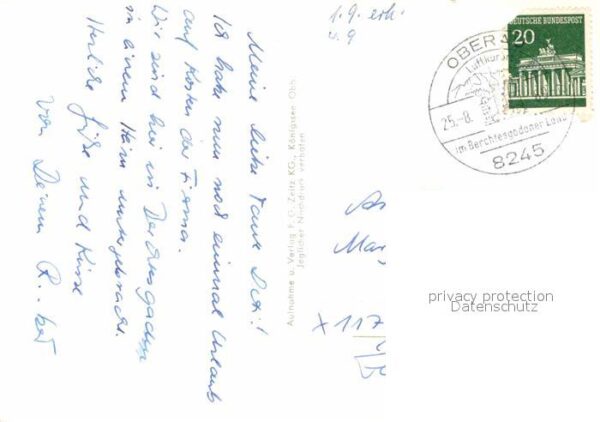 Meine liebe Tante Deti!
Ich habe nun noch einmal Urlaub
auf Kosten der Firma.
Wir sind hier in Berchtesgaden
in einem Heim untergebracht.
Herzliche Grüße und Küsse
von Deinem
Aufnahme u. Verlag F. G. Zeitz KG., Königssee Obb.
Jeglicher Nachdruck verboten
1.9. erh.
5.9
DEUTSCHE BUNDESPOST
20
OBERA
Luftkur
25.-8.
im Berchtesgadener Land
8245
An
Mar
x 117
privacy protection
Datenschutz